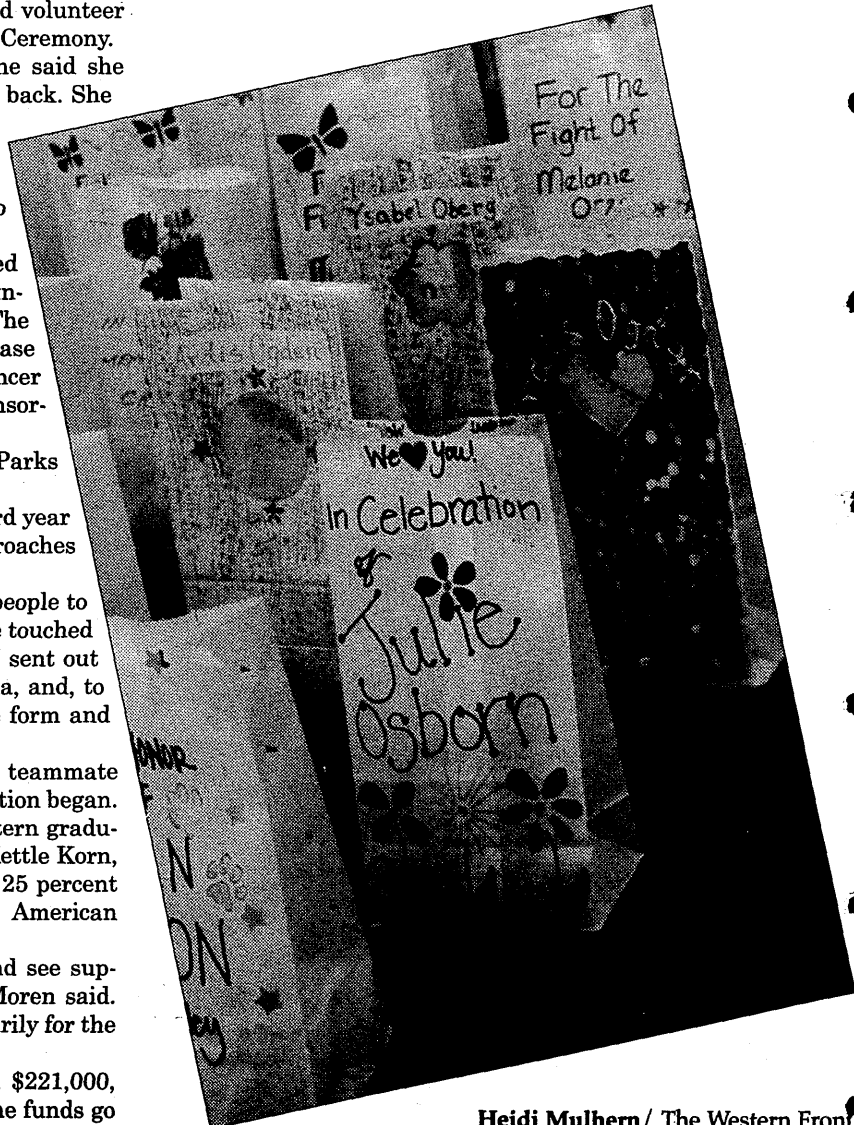 d volunteer
Ceremony.
ne said she
back. She
o
ed
n-
The
ase
ncer
nsor-
Parks
rd year
roaches
people to
e touched
sent out
a, and, to
form and
teammate
tion began.
tern gradu-
ettle Korn,
25 percent
American
nd see sup-
Moren said.
rily for the
$221,000,
ne funds go
For The
Fight Of
Melanie
F
Fi Ysabel Oberg
We ♥ You!
In Celebration
of
Julie
Osborn
ONOR
F
N
ON
ey
Heidi Mulhern / The Western Front